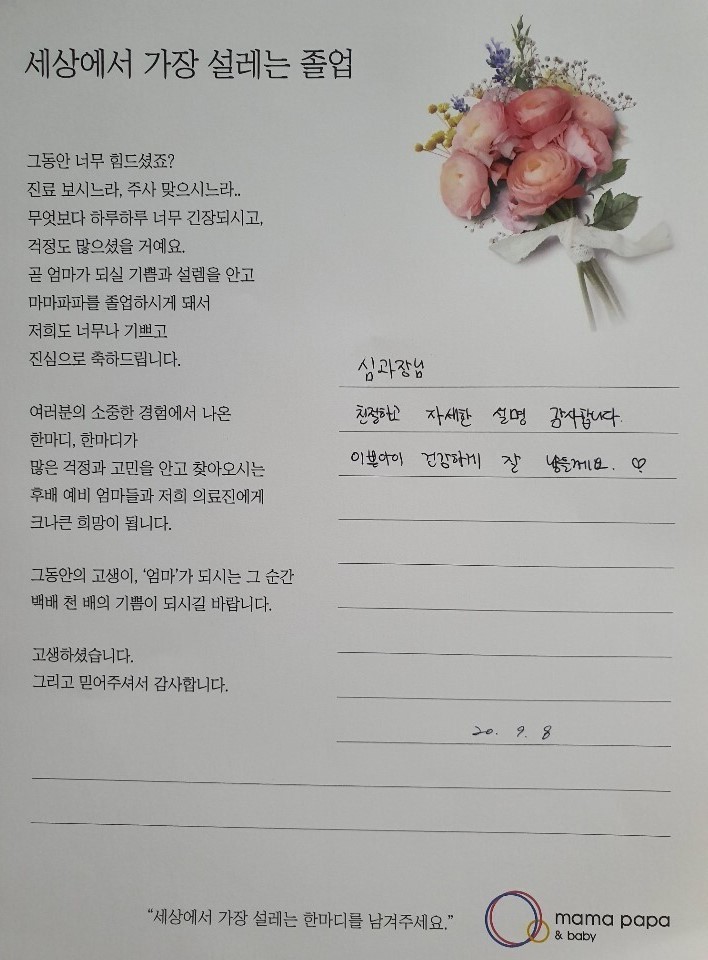 세상에서 가장 설레는 졸업
그동안 너무 힘드셨죠?
진료 보시느라, 주사 맞으시느라..
무엇보다 하루하루 너무 긴장되시고,
걱정도 많으셨을 거예요.
곧 엄마가 되실 기쁨과 설렘을 안고
마마파파를 졸업하시게 돼서
저희도 너무나 기쁘고
진심으로 축하드립니다.
여러분의 소중한 경험에서 나온
한마디, 한마디가
많은 걱정과 고민을 안고 찾아오시는
후배 예비 엄마들과 저희 의료진에게
크나큰 희망이 됩니다.
그동안의 고생이, ‘엄마’가 되시는 그 순간
백배 천 배의 기쁨이 되시길 바랍니다.
고생하셨습니다.
그리고 믿어주셔서 감사합니다.
심과장님
친절하고 자세한 설명 감사합니다.
이쁜아이 건강하게 잘 낳을께요. ♡
20. 9. 8
“세상에서 가장 설레는 한마디를 남겨주세요.”
mama papa
& baby